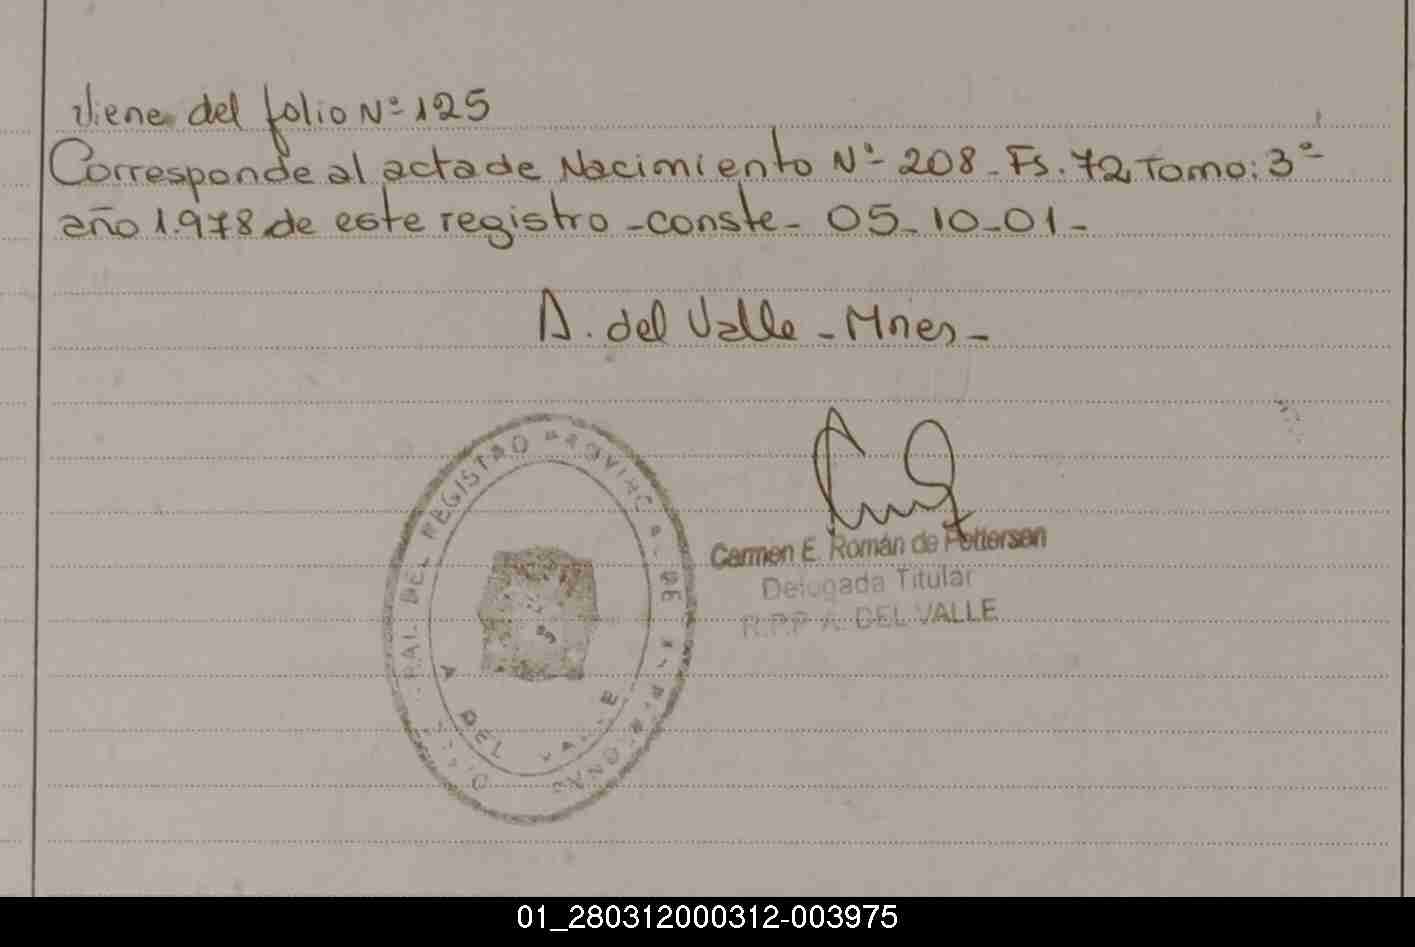 viene del folio Nº 125
Corresponde al acta de Nacimiento Nº 208 - Fs. 72, Tomo: 3º
año 1.978 de este registro - conste - 05 - 10 - 01 -
A. del Valle - Mnes -
RAL. DEL REGISTRO PROVINC DE LAS PERSONAS
A DEL VALLE
Carmen E. Román de Pettersen
Delegada Titular
R.P.P A. DEL VALLE
01_280312000312-003975